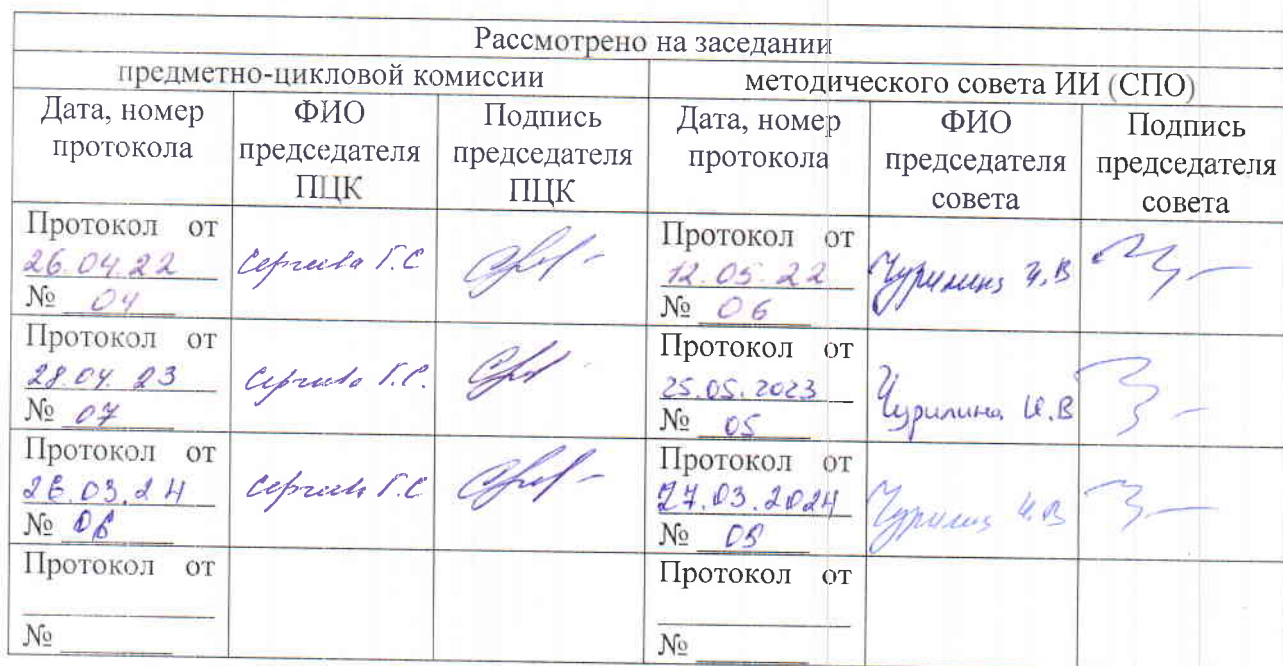 Рассмотрено на заседании
предметно-цикловой комиссии
методического совета ИИ (СПО)
Дата, номер протокола
ФИО председателя ПЦК
Подпись председателя ПЦК
Дата, номер протокола
ФИО председателя совета
Подпись председателя совета
Протокол от
26.04.22
№ 04
Сергеева Г.С
Протокол от
12.05.22
№ 06
Чурилина И.В
Протокол от
28.04.23
№ 07
Сергеева Г.С.
Протокол от
25.05.2023
№ 05
Чурилина И.В
Протокол от
26.03.24
№ 06
Сергеева Г.С
Протокол от
27.03.2024
№
Чурилина И.В
Протокол от
№
Протокол от
№